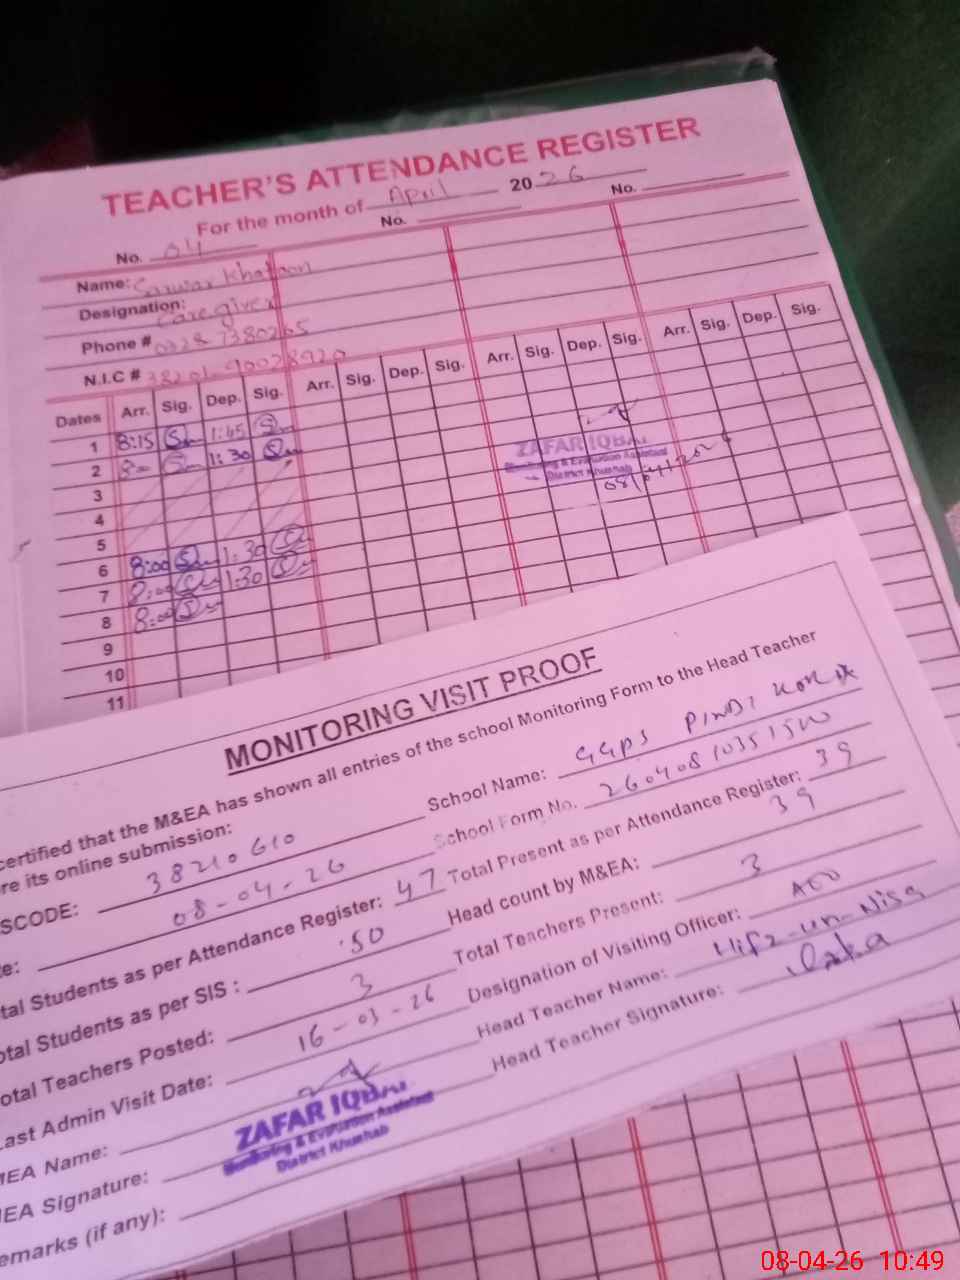 TEACHER'S ATTENDANCE REGISTER
For the month of April 2026
No. 04 No. No.
Name: Sarwar Khatoon
Designation: Care giver
Phone # 0328 7380265
N.I.C # 38201-90028920
Dates Arr. Sig. Dep. Sig. Arr. Sig. Dep. Sig. Arr. Sig. Dep. Sig. Arr. Sig. Dep. Sig.
1 8:15 1:45
2 8:00 1:30
3
4
5
6 8:00 1:30
7 8:00 1:30
8 8:00
9
10
11
ZAFAR IQBAL
Monitoring & Evaluation Assistant
District Khushab
08/04/2026
MONITORING VISIT PROOF
certified that the M&EA has shown all entries of the school Monitoring Form to the Head Teacher
re its online submission:
SCODE: 38210610 School Name: GGPS PINDI
e: 08-04-26 School Form No. 26040810351500
tal Students as per Attendance Register: 47 Total Present as per Attendance Register: 39
otal Students as per SIS : 50 Head count by M&EA: 39
otal Teachers Posted: 3 Total Teachers Present: 3
Last Admin Visit Date: 16-03-26 Designation of Visiting Officer: AEO
MEA Name: Head Teacher Name: Hifz-un-Nisa
EA Signature: Head Teacher Signature:
ZAFAR IQBAL
Monitoring & Evaluation Assistant
District Khushab
emarks (if any):
08-04-26 10:49